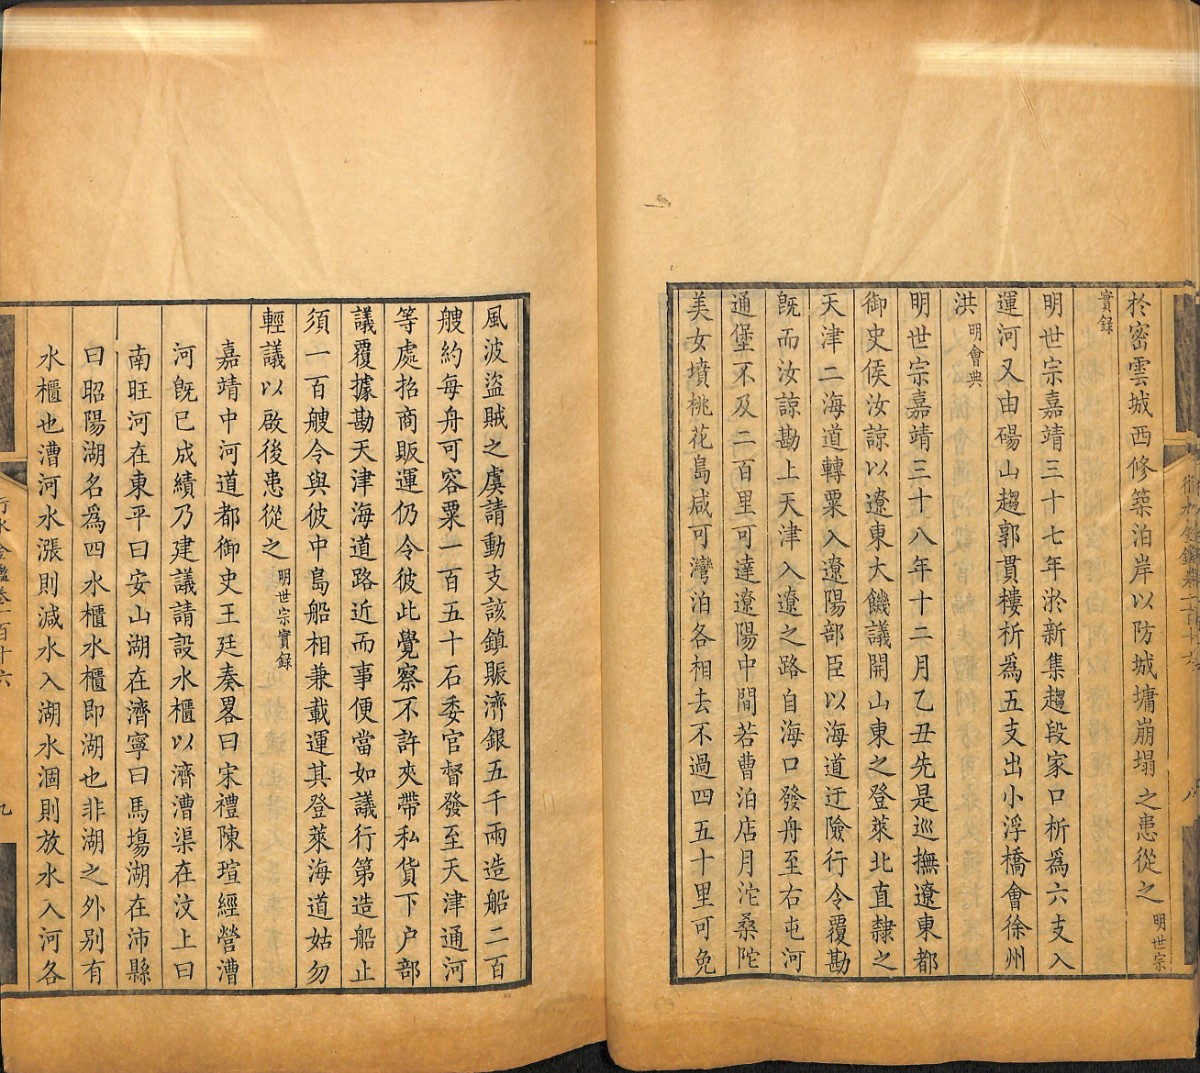 於密雲城西修築泊岸以防城墉崩塌之患從之明世宗
實錄
明世宗嘉靖三十七年淤新集趨段家口析為六支入
運河又由碭山趨郭貫樓析為五支出小浮橋會徐州
洪明會典
明世宗嘉靖三十八年十二月乙丑先是巡撫遼東都
御史侯汝諒以遼東大饑議開山東之登萊北直隸之
天津二海道轉粟入遼陽部臣以海道迂險行令覆勘
旣而汝諒勘上天津入遼之路自海口發舟至右屯河
通堡不及二百里可達遼陽中間若曹泊店月沱桑陀
美女墳桃花島咸可灣泊各相去不過四五十里可免
風波盜賊之虞請動支該鎮賑濟銀五千兩造船二百
艘約每舟可容粟一百五十石委官督發至天津通河
等處招商販運仍令彼此覺察不許夾帶私貨下户部
議覆據勘天津海道路近而事便當如議行第造船止
須一百艘令與彼中島船相兼載運其登萊海道姑勿
輕議以啟後患從之明世宗實錄
嘉靖中河道都御史王廷奏畧曰宋禮陳瑄經營漕
河旣已成績乃建議請設水櫃以濟漕渠在汶上曰
南旺河在東平曰安山湖在濟寧曰馬塲湖在沛縣
曰昭陽湖名為四水櫃水櫃即湖也非湖之外別有
水櫃也漕河水漲則減水入湖水涸則放水入河各
行水金鑑卷一百十六
九